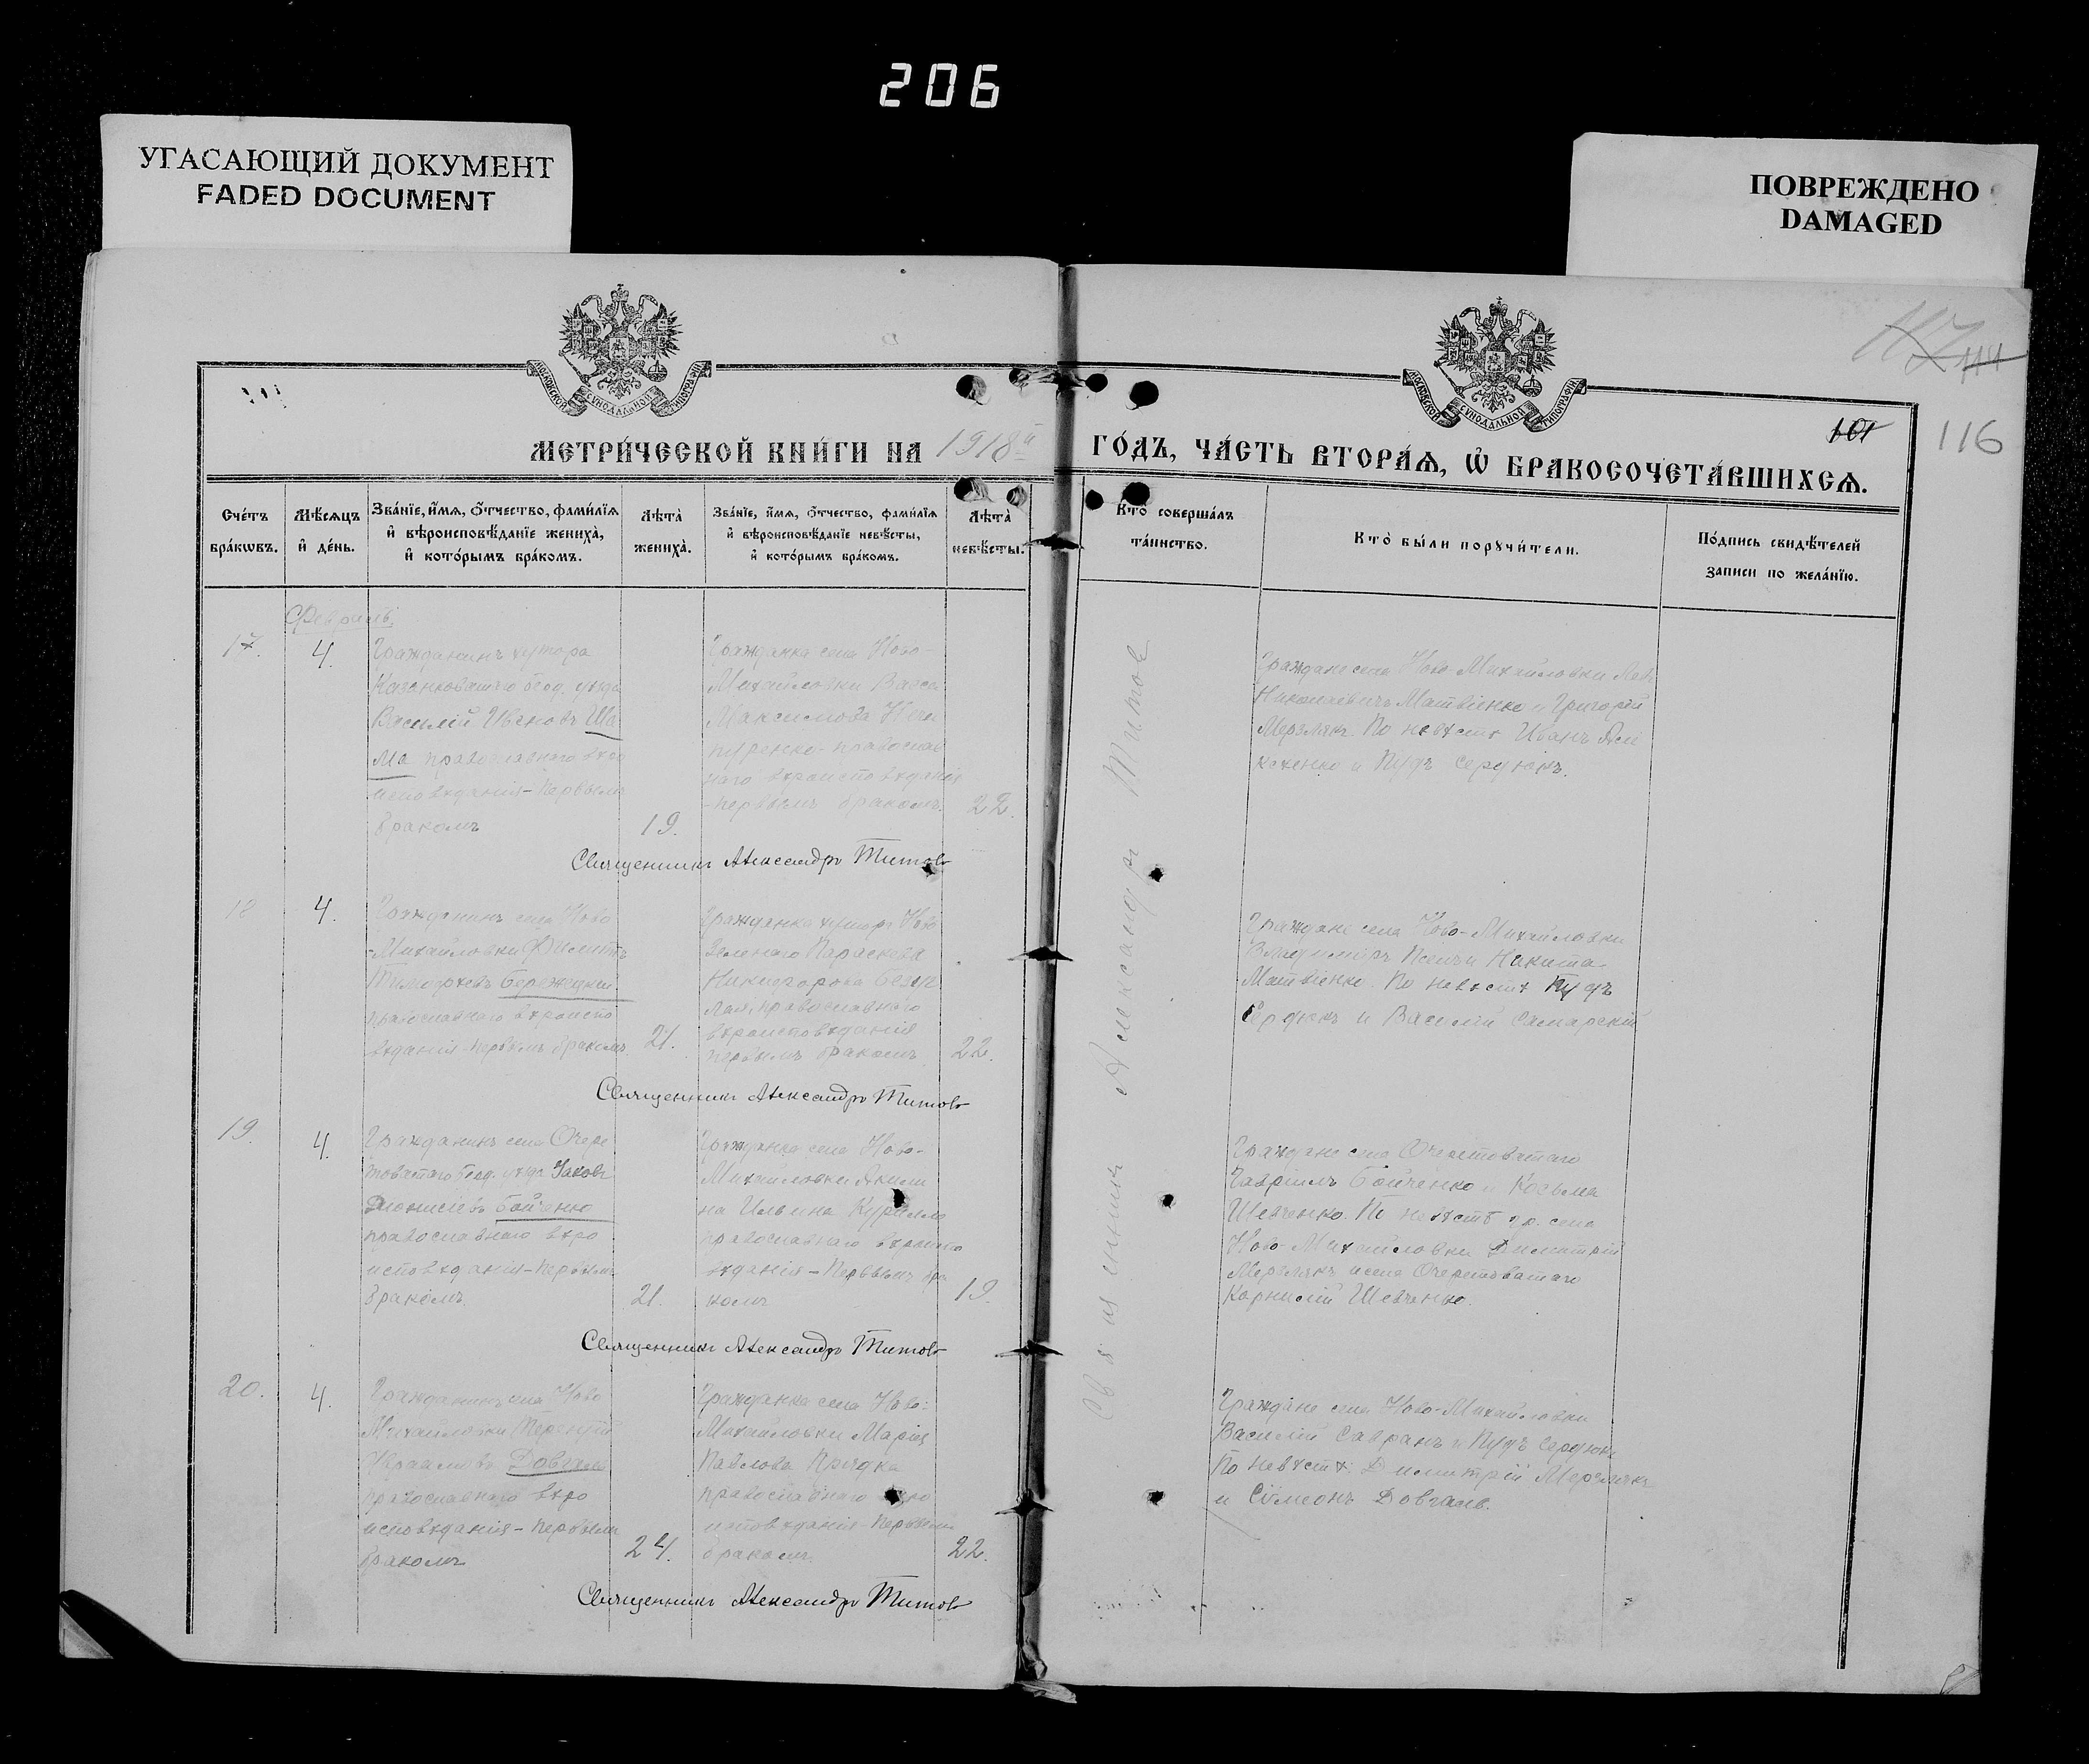 206
УГАСАЮЩИЙ ДОКУМЕНТ
FADED DOCUMENT
ПОВРЕЖДЕНО
DAMAGED
МОСКОВСКОЙ СѴНОДАЛЬНОЙ ТИПОГРАФІИ
МОСКОВСКОЙ СѴНОДАЛЬНОЙ ТИПОГРАФІИ
114
101
116
МЕТРИ́ЧЕСКОЙ КНИ́ГИ НА 1918й ГО́ДЪ, ЧА́СТЬ ВТОРА́Ѧ, Ѡ҆ БРАКОСОЧЕТА́ВШИХСѦ.
Сче́тъ бра́кѡвъ.
Мѣ́сѧцъ и҆ де́нь.
Зва́нїе, и҆́мѧ, ѻ҆́тчество, фами́лїѧ
и҆ вѣроисповѣ́данїе жениха̀,
и҆ кото́рымъ бра́комъ.
Лѣта̀ жениха̀.
Зва́нїе, и҆́мѧ, ѻ҆́тчество, фами́лїѧ
и҆ вѣроисповѣ́данїе невѣ́сты,
и҆ кото́рымъ бра́комъ.
Лѣта̀ невѣ́сты.
Кто̀ соверша́лъ та́инство.
Кто̀ бы́ли порꙋчи́тели.
По́дпись свидѣ́телей
записи по жела́нїю.
Февраль.
17.
4.
Гражданинъ хутора
уѣзда
Василій Ивановъ Ша
ма православнаго вѣро
исповѣданія - первымъ
бракомъ
19.
Гражданка села Ново-
Михайловки Васса
Максимова
православ
наго вѣроисповѣданія
- первымъ бракомъ.
22.
Граждане села Ново-Михайловки
Николаевичъ Матвіенко и Григорій
Мерзлякъ. По невѣстѣ Иванъ
и Пудъ Сердюкъ.
Священникъ Александръ Титовъ
18
4.
Гражданинъ села Ново
-Михайловки Филиппъ
Тимофеевъ Бережецкій
православнаго вѣроиспо
вѣданія - первымъ бракомъ.
21.
Гражданка хутора Ново
Зеленаго Параскева
Никифорова
православнаго
вѣроисповѣданія
первымъ бракомъ
22.
Граждане села Ново-Михайловки
Владиміръ и Никита
Матвіенко. По невѣстѣ Пудъ
Сердюкъ и Василій Самарскій
Священникъ Александръ Титовъ
19.
4.
Гражданинъ села Очере
товатаго уѣзда Іаковъ
Діонисіевъ Бойченко
православнаго вѣро
исповѣданія - первымъ
бракомъ
21.
Гражданка села Ново-
Михайловки Акили
на Ильина Курилло
православнаго вѣроиспо
вѣданія - первымъ бра
комъ
19.
Граждане села Очеретоватаго
Гавріилъ Бойченко и Косьма
Шевченко. По невѣстѣ гр. села
Ново-Михайловки Димитрій
Мерзлякъ и села Очеретоватаго
Корнилій Шевченко.
Священникъ Александръ Титовъ
20.
4.
Гражданинъ села Ново
Михайловки Терентій
Авраамовъ Довгаль
православнаго вѣро
исповѣданія - первымъ
бракомъ
24.
Гражданка села Ново-
Михайловки Марія
Павлова Прядка
православнаго вѣро
исповѣданія - первымъ
бракомъ.
22.
Граждане села Ново-Михайловки
Василій Савранъ и Пудъ Сердюкъ
По невѣстѣ: Димитрій Мерзлякъ
и Сѵмеонъ Довгаль.
Священникъ Александръ Титовъ
Священникъ Александръ Титов